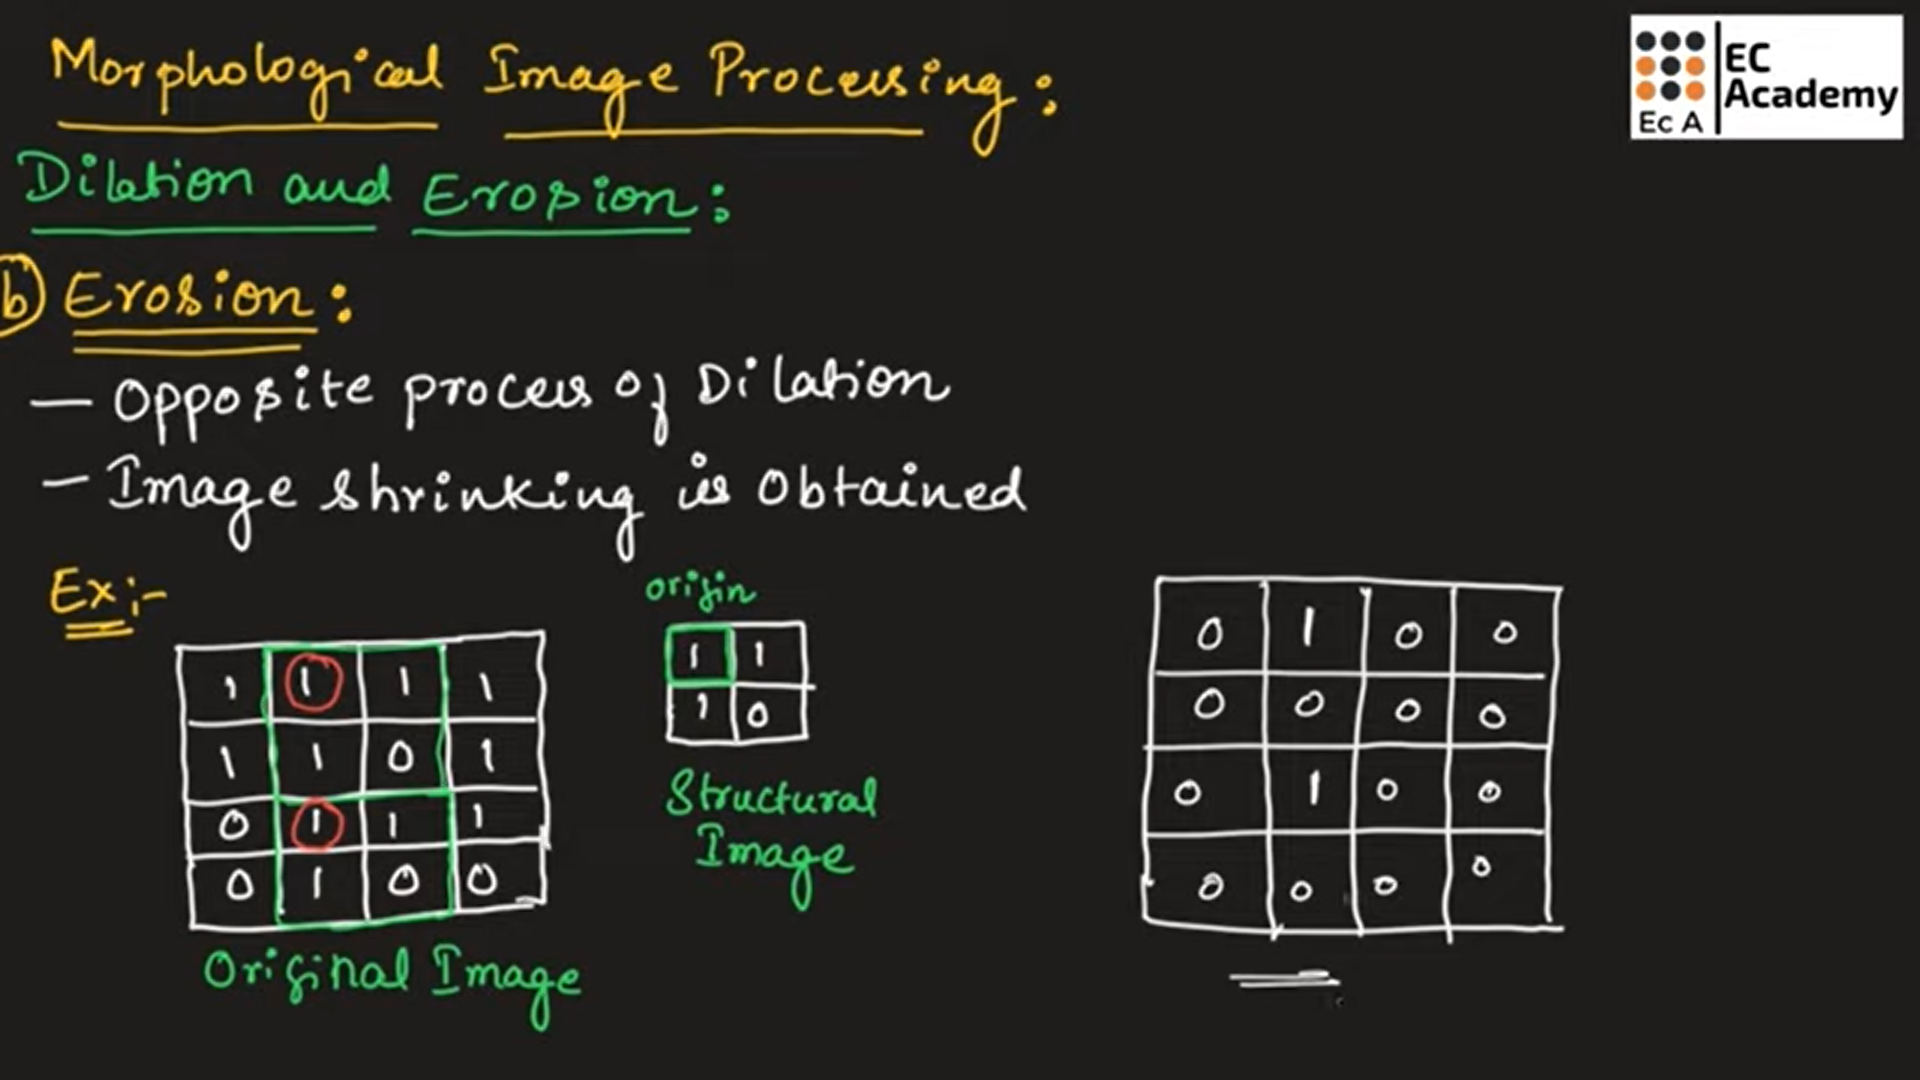 Morphological Image Processing:
EC
Academy
Ec A
Dilation and Erosion:
b) Erosion:
— Opposite process of Dilation
— Image shrinking is Obtained
Ex:-
origin
1 1 1 1
1 1 0 1
0 1 1 1
0 1 0 0
Original Image
1 1
1 0
Structural
Image
0 1 0 0
0 0 0 0
0 1 0 0
0 0 0 0